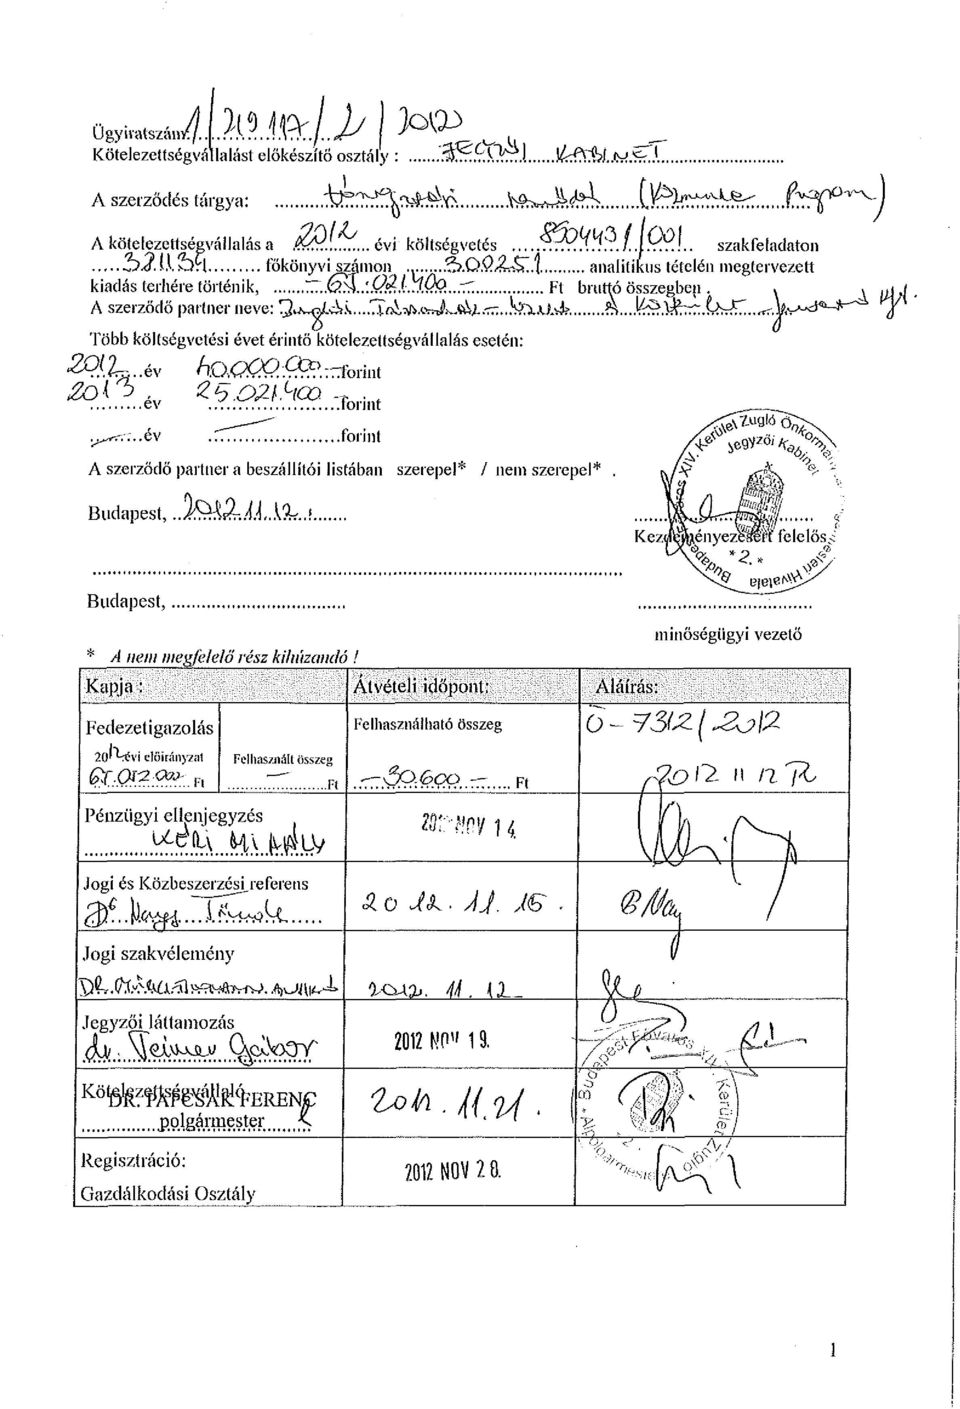 Ügyiratszám: 1/219117/2/2012
Kötelezettségvállalást előkészítő osztály : JEGYZŐI KABINET
A szerződés tárgya: (Közmunka Program)
A kötelezettségvállalás a 2012 évi költségvetés 850443 1/001 szakfeladaton
381134 főkönyvi számon 300251 analitikus tételén megtervezett
kiadás terhére történik, - 65.021.400 - Ft bruttó összegben .
A szerződő partner neve: Zuglói
Több költségvetési évet érintő kötelezettségvállalás esetén:
2012 év 40.000.000 -forint
2013 év 25.021.400 -forint
év forint
A szerződő partner a beszállítói listában szerepel* / nem szerepel* .
Budapest, 2012.11.12.
Kezdeményezésért felelős
Budapest Főváros XIV. Kerület Zugló Önkormányzata Polgármesteri Hivatala
Jegyzői Kabinet
* 2. *
Budapest,
minőségügyi vezető
* A nem megfelelő rész kihúzandó !
Kapja : Átvételi időpont: Aláírás:
Fedezetigazolás Felhasználható összeg Ö-7312/2012
2012 évi előirányzat Felhasznált összeg
Ft - Ft - 30.600 - Ft 2012 11 12
Pénzügyi ellenjegyzés 2012 NOV 14.
KÉRI MIHÁLY
Jogi és Közbeszerzési referens
Dr Nagy Tünde 2012.11.15.
Jogi szakvélemény
DR. 2012. 11. 12
Jegyzői láttamozás 2012 NOV 19.
dr. Teimer Gábor
Kötelezettségvállaló: 2012.11.21.
DR. PAPCSÁK FERENC
polgármester
Budapest Főváros XIV. Kerület Zugló
* Alpolgármester
2.
Regisztráció: 2012 NOV 28.
Gazdálkodási Osztály
1